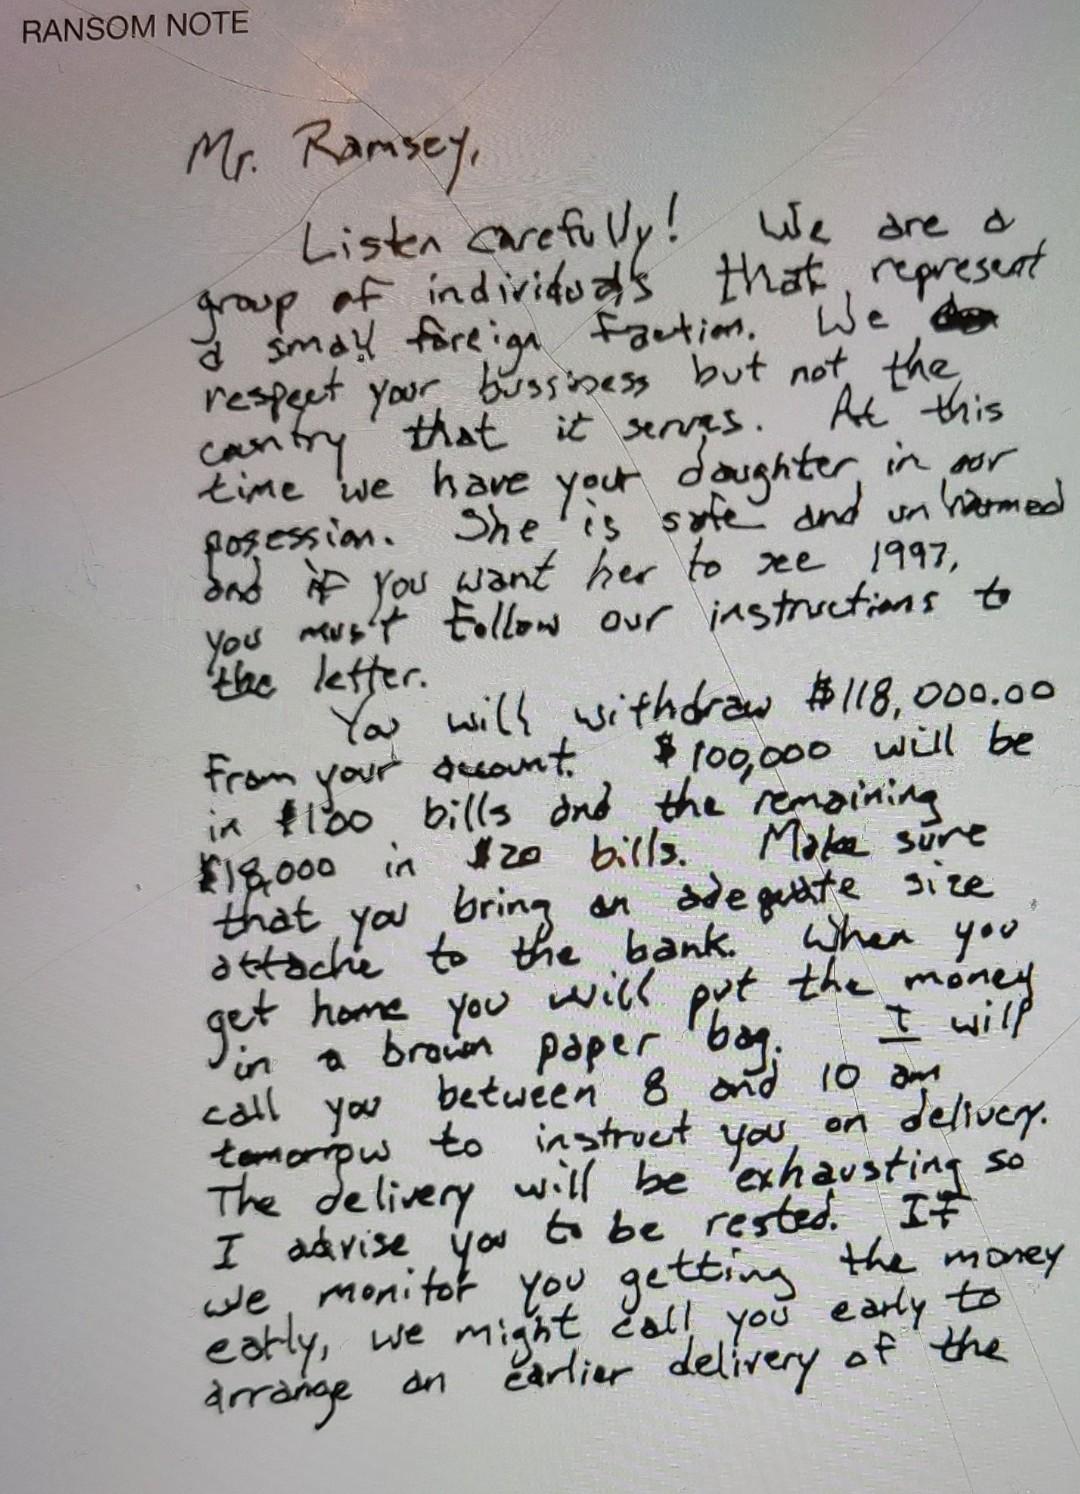 RANSOM NOTE
Mr. Ramsey,
Listen carefully! We are a
group of individuals that represent
a small foreign faction. We
respect your bussiness but not the
country that it serves. At this
time we have your daughter in our
posession. She is safe and unharmed
and if you want her to see 1997,
you must follow our instructions to
the letter.
You will withdraw $118,000.00
from your account. $100,000 will be
in $100 bills and the remaining
$18,000 in $20 bills. Make sure
that you bring an adequate size
attache to the bank. When you
get home you will put the money
in a brown paper bag. I will
call you between 8 and 10 am
tomorrow to instruct you on delivery.
The delivery will be exhausting so
I advise you to be rested. If
we monitor you getting the money
early, we might call you early to
arrange an earlier delivery of the